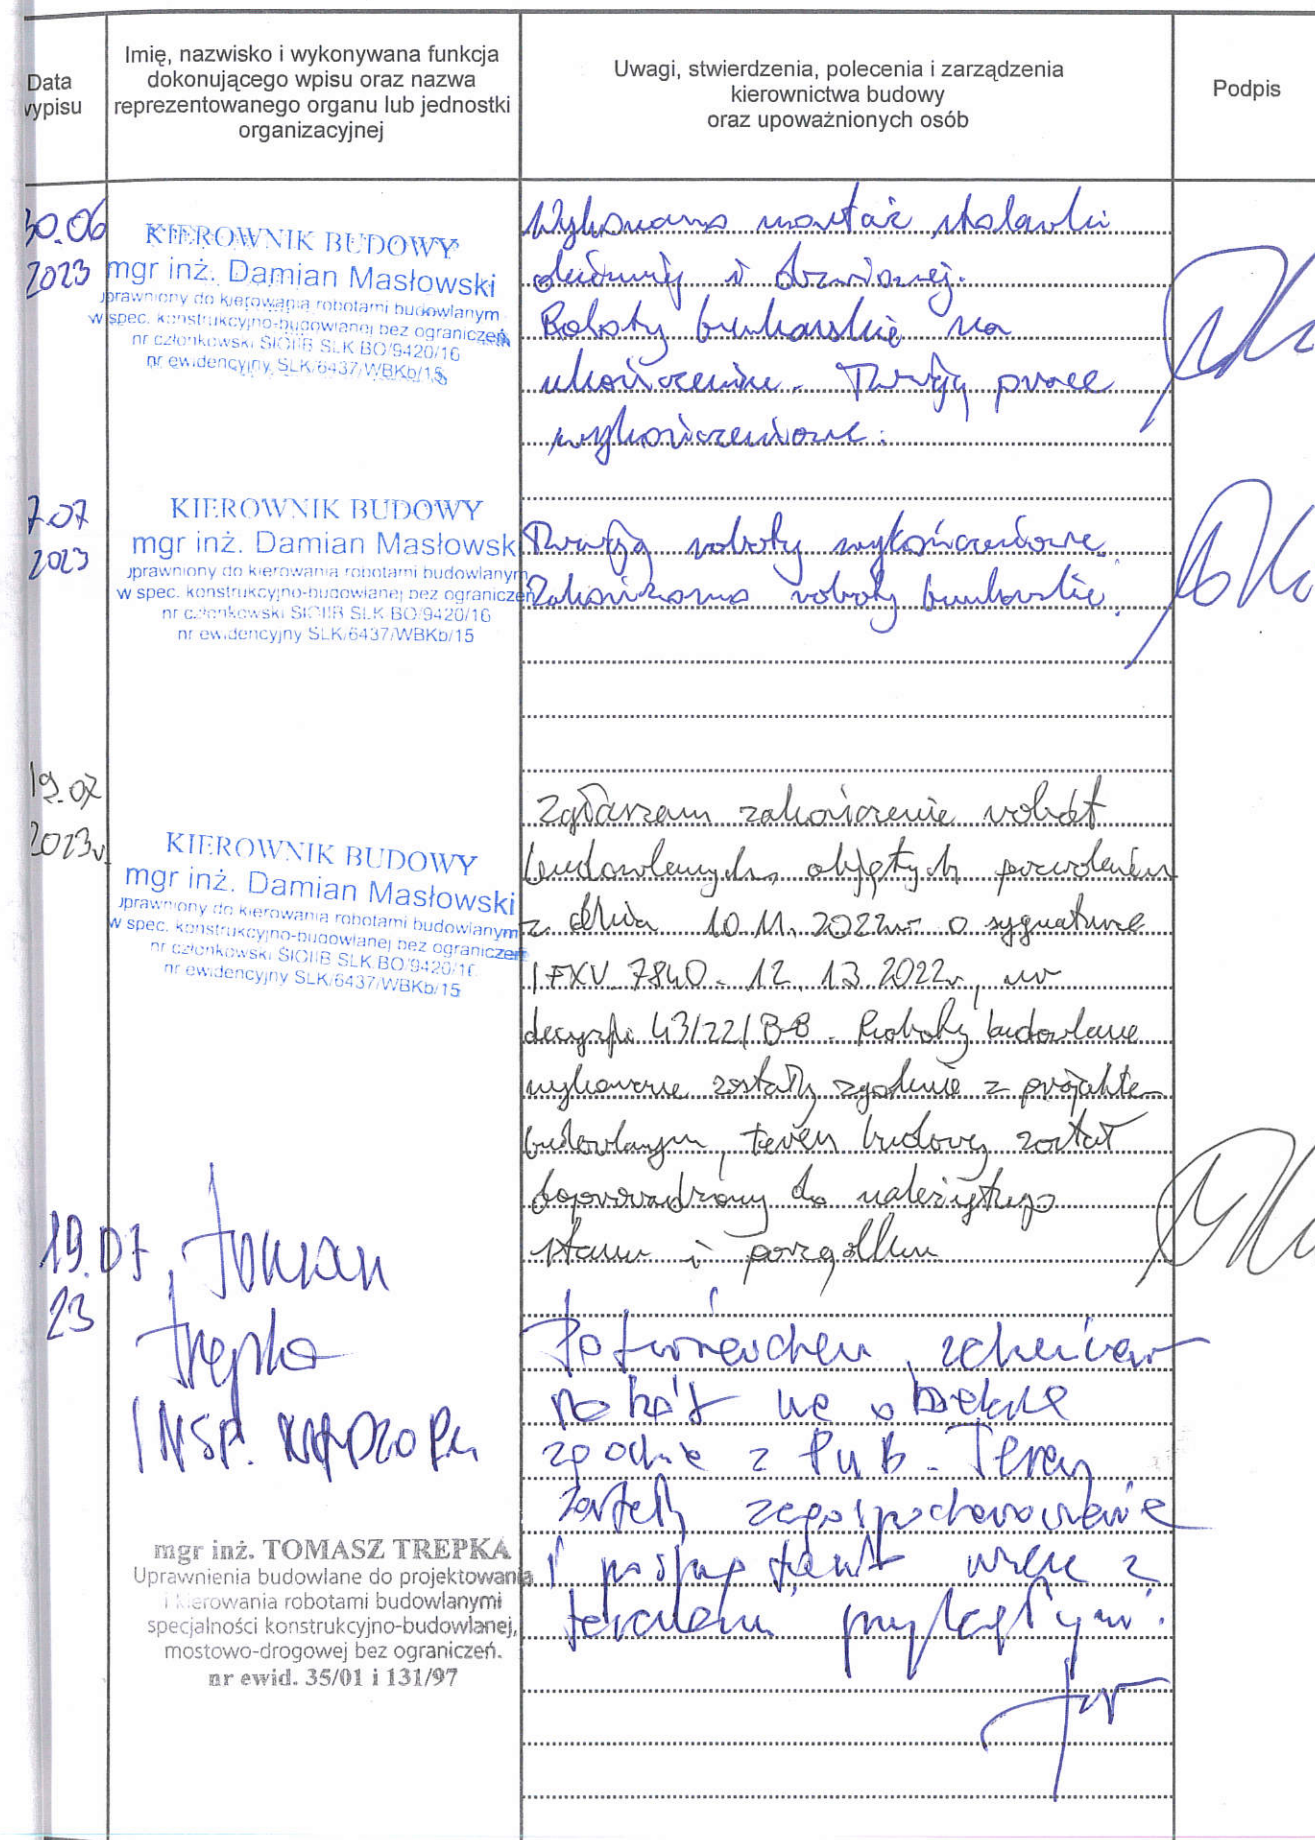 Data
wypisu
Imię, nazwisko i wykonywana funkcja
dokonującego wpisu oraz nazwa
reprezentowanego organu lub jednostki
organizacyjnej
Uwagi, stwierdzenia, polecenia i zarządzenia
kierownictwa budowy
oraz upoważnionych osób
Podpis
30.06
2023
KIEROWNIK BUDOWY
mgr inż. Damian Masłowski
uprawniony do kierowania robotami budowlanym
w spec. konstrukcyjno-budowlanej bez ograniczeń
nr członkowski SlOIIB SLK BO/9420/16
nr ewidencyjny SLK/6437/WBKb/15
Wykonano montaż stolarki
okiennej i drzwiowej.
Roboty brukarskie na
ukończeniu. Trwają prace
wykończeniowe.
7.07
2023
KIEROWNIK BUDOWY
mgr inż. Damian Masłowsk
uprawniony do kierowania robotami budowlanym
w spec. konstrukcyjno-budowlanej bez ograniczeń
nr członkowski SlOIIB SLK BO/9420/16
nr ewidencyjny SLK/6437/WBKb/15
Trwają roboty wykończeniowe.
Zakończono roboty brukarskie.
19.07
2023r
KIEROWNIK BUDOWY
mgr inż. Damian Masłowski
uprawniony do kierowania robotami budowlanym
w spec. konstrukcyjno-budowlanej bez ograniczeń
nr członkowski SlOIIB SLK BO/9420/16
nr ewidencyjny SLK/6437/WBKb/15
Zgłaszam zakończenie robót
budowlanych objętych pozwoleniem
z dnia 10.11.2022r o sygnaturze
IFXV.7840.12.13.2022r, nr
decyzji 43/22/B-B. Roboty budowlane
wykonane zostały zgodnie z projektem
budowlanym, teren budowy został
doprowadzony do należytego
stanu i porządku
19.07
23
Tomasz
Trepka
INSP. NADZORU
mgr inż. TOMASZ TREPKA
Uprawnienia budowlane do projektowania
i kierowania robotami budowlanymi
specjalności konstrukcyjno-budowlanej,
mostowo-drogowej bez ograniczeń.
nr ewid. 35/01 i 131/97
Potwierdzam
robót na obiekcie
zgodnie z Teren
został
i wraz z
terenem przyległym.